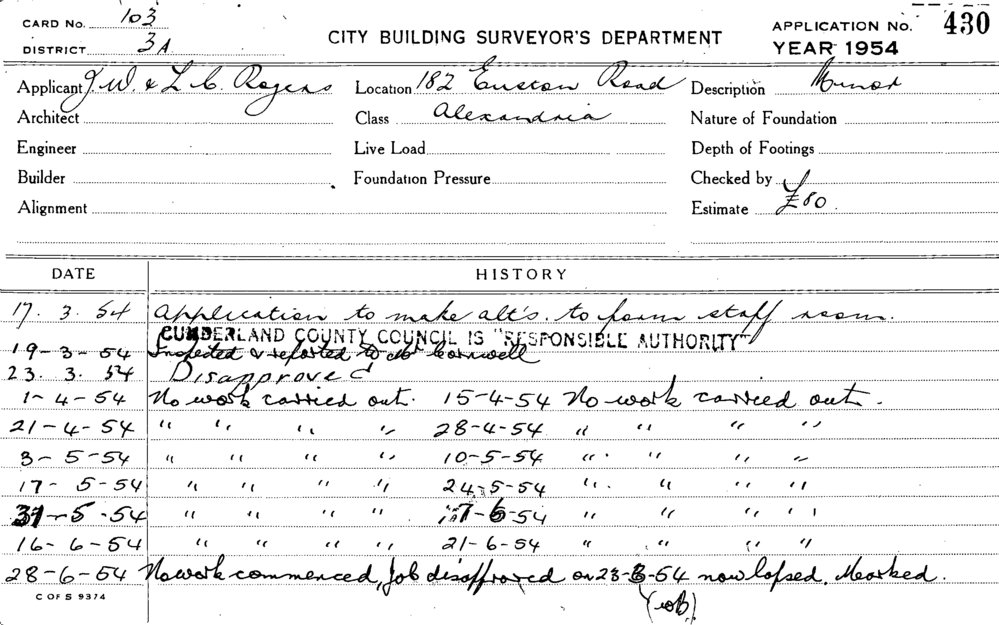 CARD No. 103
DISTRICT 3A
CITY BUILDING SURVEYOR'S DEPARTMENT
APPLICATION No. 430
YEAR 1954
Applicant J. W. & L. C. Rogers Location 182 Euston Road Description Minor
Architect Class Alexandria Nature of Foundation
Engineer Live Load Depth of Footings
Builder Foundation Pressure Checked by
Alignment Estimate £80.
DATE HISTORY
17. 3. 54 Application to make alt's. to form staff room.
CUMBERLAND COUNTY COUNCIL IS "RESPONSIBLE AUTHORITY"
19-3-54 Inspected & reported to Mr Cornwell
23. 3. 54 Disapproved
1-4-54 No work carried out. 15-4-54 No work carried out.
21-4-54 " " " " 28-4-54 " " " "
3-5-54 " " " " 10-5-54 " " " "
17-5-54 " " " " 24-5-54 " " " "
31-5-54 " " " " 7-6-54 " " " "
16-6-54 " " " " 21-6-54 " " " "
28-6-54 No work commenced, Job disapproved on 23-3-54 now lapsed. Marked.
(wb).
C OF S 9374